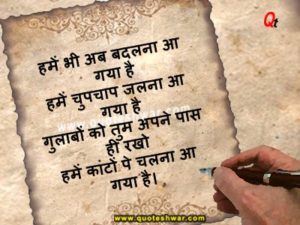 Qt
हमें भी अब बदलना आ
गया है
हमें चुपचाप जलना आ
गया है
गुलाबों को तुम अपने पास
ही रखो
हमें कांटों पे चलना आ
गया है।
www.quoteshwar.com